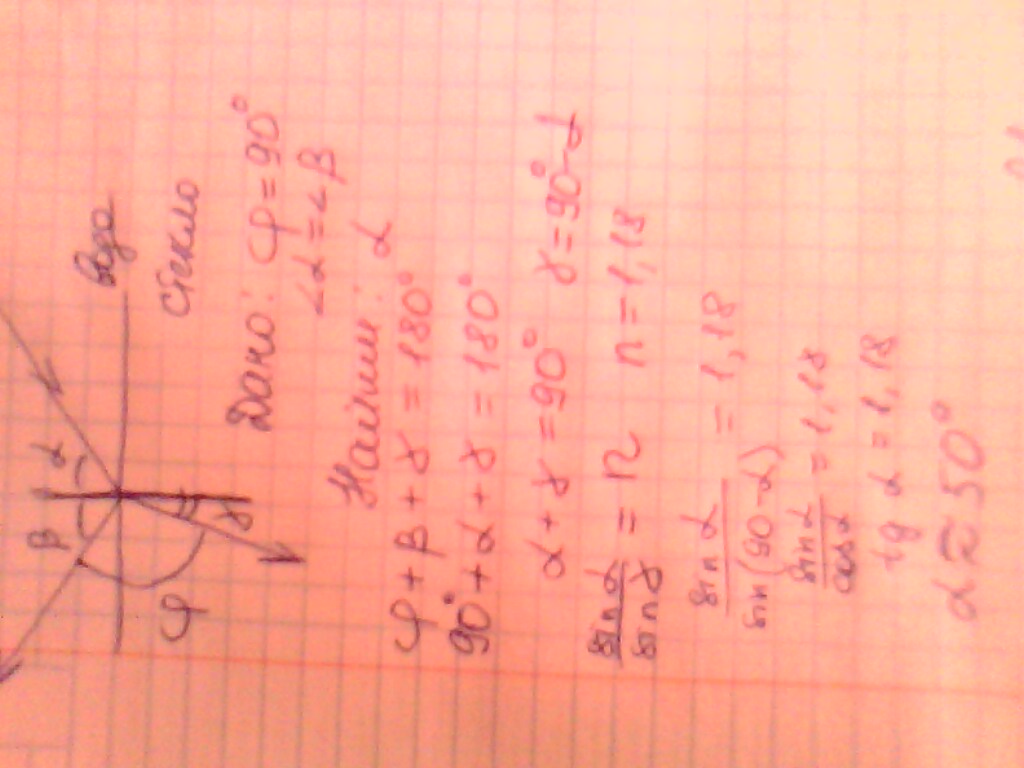 β α
вода
φ γ
стекло
Дано: φ = 90°
∠α = ∠β
Найти: α
φ + β + γ = 180°
90° + α + γ = 180°
α + γ = 90° γ = 90° - α
sin α / sin γ = n n = 1,18
sin α / sin(90 - α) = 1,18
sin α / cos α = 1,18
tg α = 1,18
α ≈ 50°